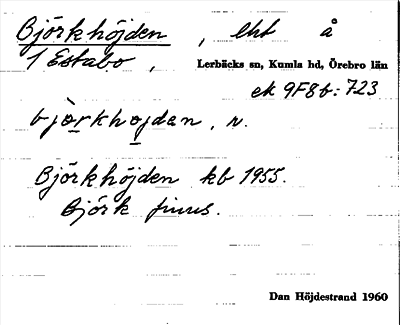 Björkhöjden, lht å
1 Estabo, Lerbäcks sn, Kumla hd, Örebro län
ek 9F8b:723
bjòrkhojdan, n.
Björkhöjden kb 1955.
Björk finns.
Dan Höjdestrand 1960